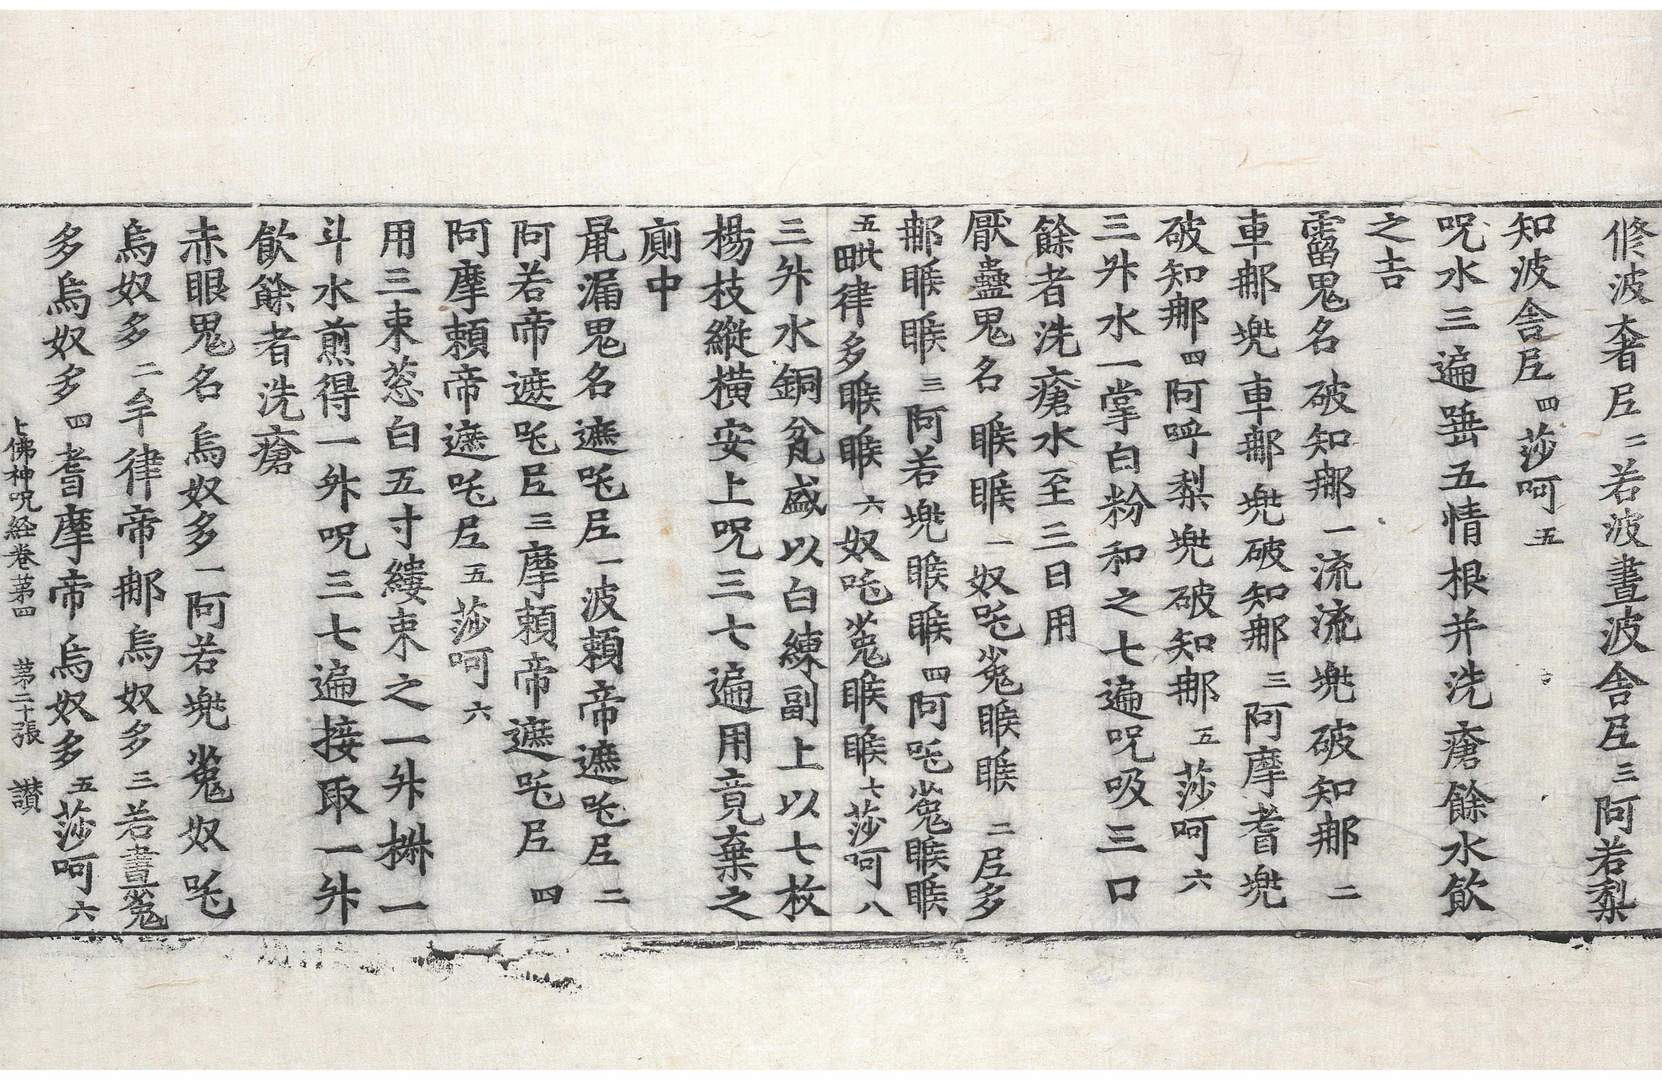 修波奢𡰱二若波晝波舍𡰱三阿若梨
知波舍𡰱四莎呵五
呪水三遍𠱥五情根并洗瘡餘水飲
之吉
䨓鬼名破知那一流流兠破知那二
車那兠車那兠破知那三阿摩耆兠
破知那四阿呼梨兠破知那五莎呵六
三升水一掌白粉和之七遍呪吸三口
餘者洗瘡水至三日用
厭蠱鬼名睺睺一奴吒菟睺睺二𡰱多
那睺睺三阿若兠睺睺四阿吒菟睺睺
五毗律多睺睺六奴吒菟睺睺七莎呵八
三升水銅瓫盛以白練副上以七枚
楊枝縱橫安上呪三七遍用竟棄之
廁中
鼠漏鬼名遮吒𡰱一波賴帝遮吒𡰱二
阿若帝遮吒𡰱三摩賴帝遮吒𡰱四
阿摩賴帝遮吒𡰱五莎呵六
用三束葱白五寸縷束之一升𣗳一
斗水煎得一升呪三七遍接取一升
飲餘者洗瘡
赤眼鬼名烏奴多一阿若兠菟奴吒
烏奴多二牟律帝那烏奴多三若晝菟
多烏奴多四耆摩帝烏奴多五莎呵六
七佛神呪経卷苐四 苐二十張 讃